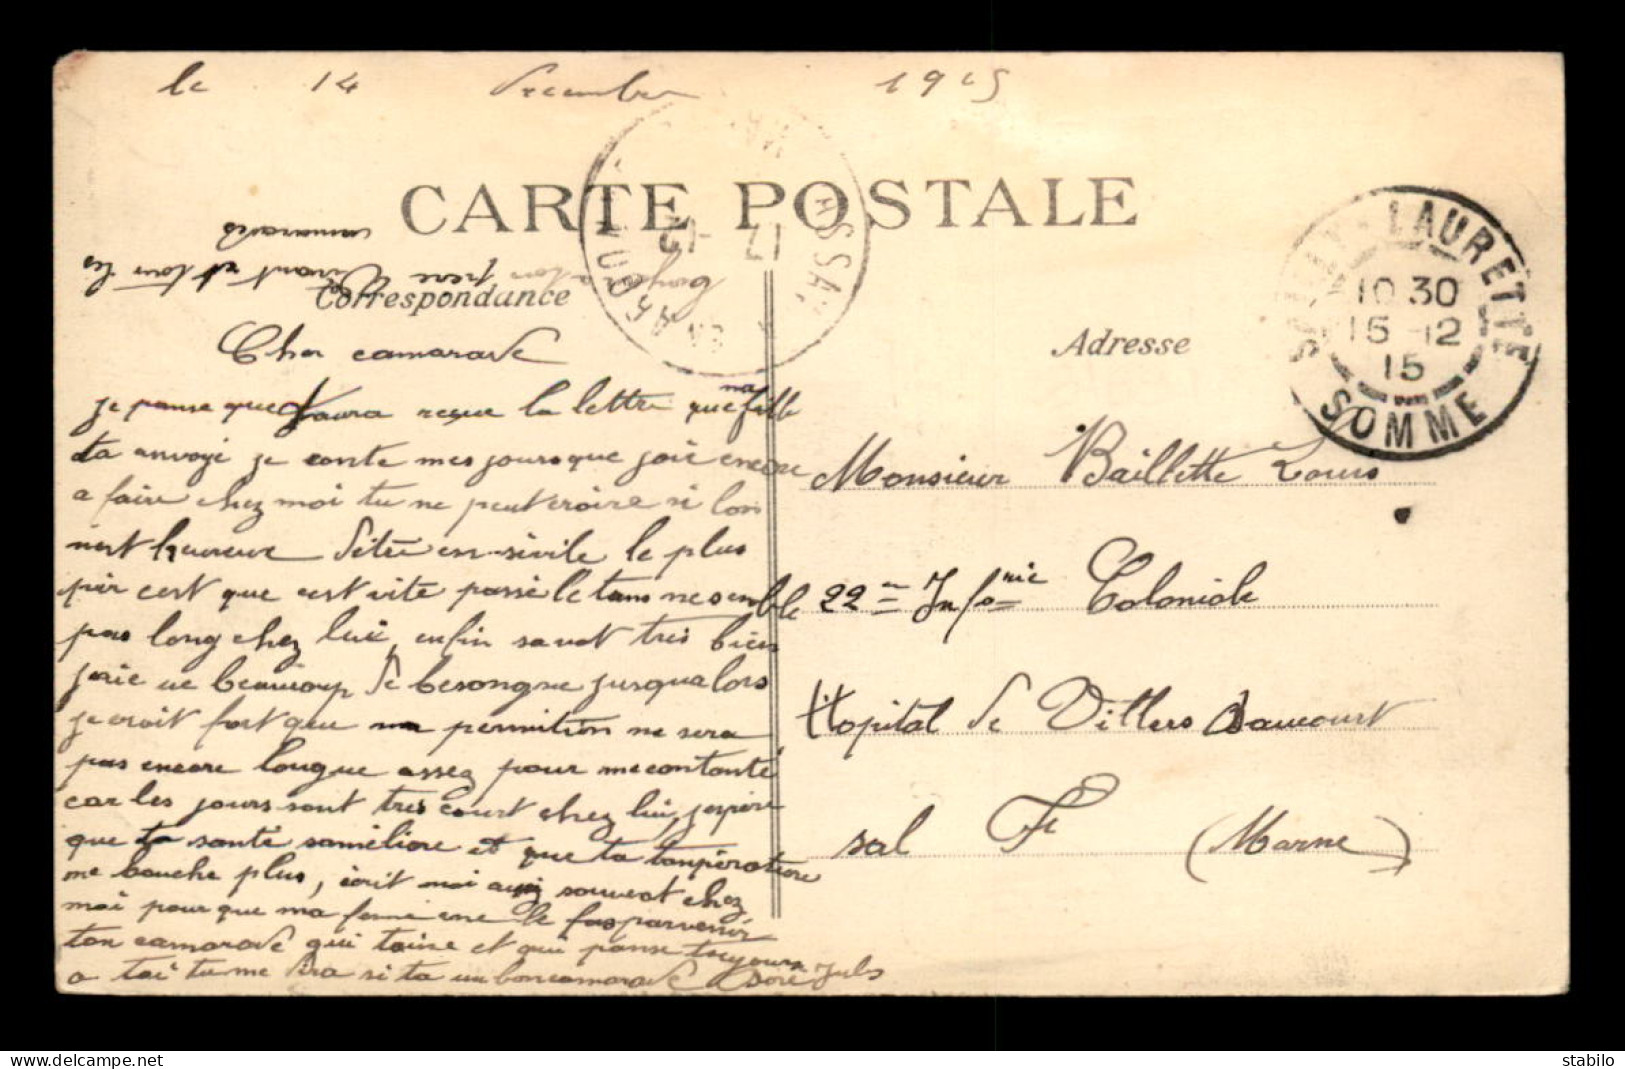 le 14 Decembre 1915
CARTE POSTALE
Correspondance
Adresse
LAURETTE
10 30
15 -12
15
SOMME
17 -12
bonjour a ton frere et tous les
camarades
Cher camarade
je panse que taura reçue la lettre que ma fille
ta anvoyé je conte mes jours que joie encore
a faire chez moi tu ne peut croire si lon
n'est heureux d'etre en sivile le plus
pir cest que cest vite passé le tams ne semble
pas long chez lui, enfin savat tres bien
joie ue beaucoup de besongne jusqualors
je croit fort que ma permition ne sera
pas encore longue assez pour me contanté
car les jours sont tres court chez lui, jespere
que ta santé saméliore et que ta tanpérature
ne bouche plus, écrit moi aussi souvent chez
moi pour que ma feme me le fas parvenir
ton camarade qui taime et qui panse toujours
a toi tu me dira si ta un bon camarade Doré Juls
Monsieur Baillette Louis
22e Infrie Coloniale
Hopital de Villers Daucourt
sal F (Marne)
stabilo